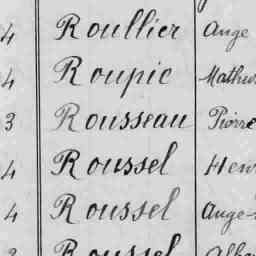 4 Roullier Ange
4 Roupie
3 Rousseau Pierre
4 Roussel
4 Roussel Ange
Roussel